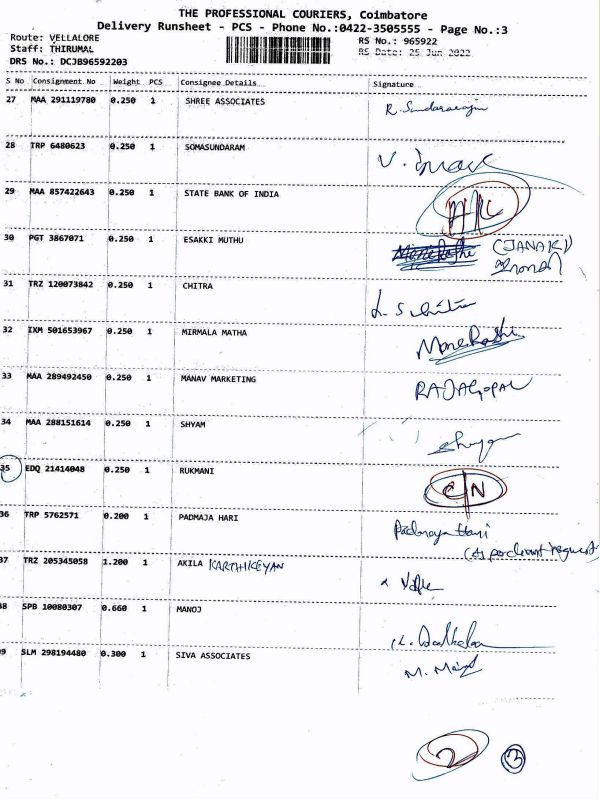 THE PROFESSIONAL COURIERS, Coimbatore
Delivery Runsheet - PCS - Phone No.:0422-3505555 - Page No.:3
Route: VELLALORE
Staff: THIRUMAL
DRS No.: DCJB96592203
RS No.: 965922
RS Date: 25 Jun 2022
S No Consignment No Weight PCS Consignee Details Signature
27 MAA 291119780 0.250 1 SHREE ASSOCIATES
28 TRP 6480623 0.250 1 SOMASUNDARAM
29 MAA 857422643 0.250 1 STATE BANK OF INDIA
30 PGT 3867071 0.250 1 ESAKKI MUTHU (JANAKI)
31 TRZ 120073842 0.250 1 CHITRA
32 IXM 501653967 0.250 1 MIRMALA MATHA
33 MAA 289492450 0.250 1 MANAV MARKETING RAJAGOPAL
34 MAA 288151614 0.250 1 SHYAM
35 EDQ 21414048 0.250 1 RUKMANI
36 TRP 5762571 0.200 1 PADMAJA HARI
37 TRZ 205345058 1.200 1 AKILA KARTHIKEYAN
38 SPB 10080307 0.660 1 MANOJ
39 SLM 298194480 0.300 1 SIVA ASSOCIATES
2 3